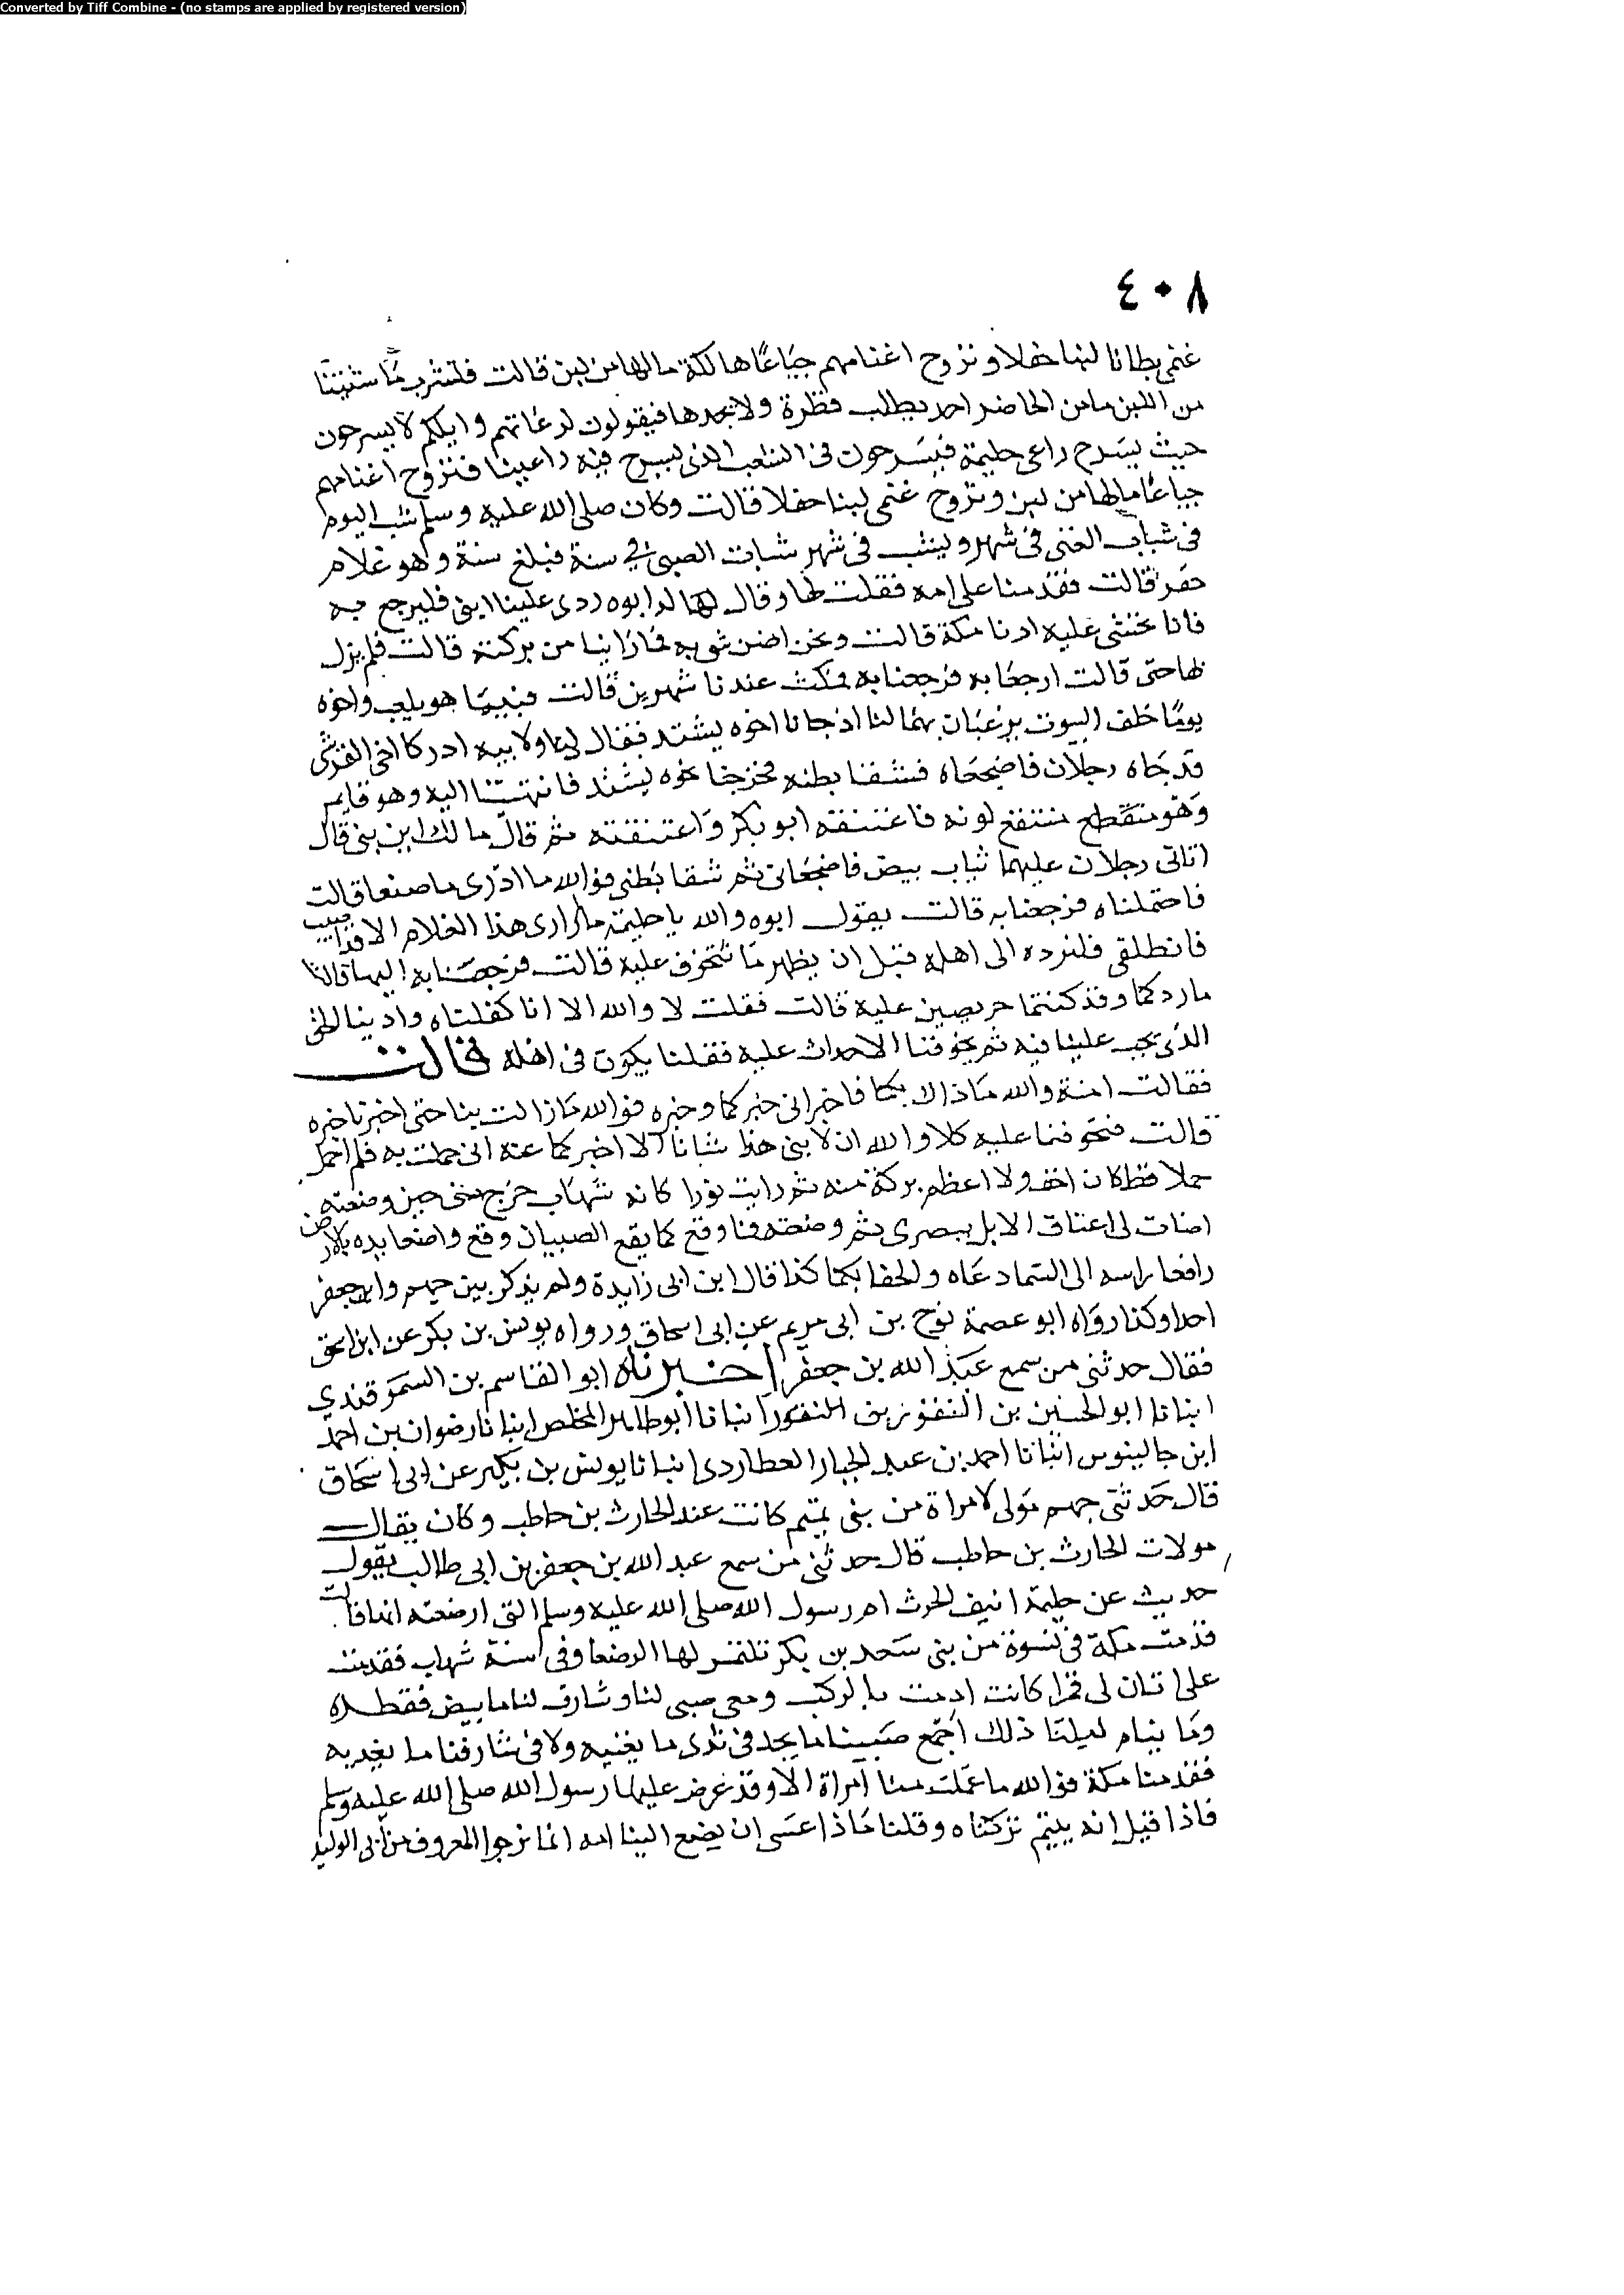 Converted by Tiff Combine - (no stamps are applied by registered version)
٤٠٨
غنمي بطانا لبنا حفلا وتروح اغنامهم جياعًا هالكة ما لها من لبن قالت فنشرب ما شئنا
من اللبن ما من الحاضر احد يطلب قطرة ولا يجدها فيقولون لرعاتهم وايلكم لا يسرحون
حيث يسرح راعى حليمة فيسرحون فى الشعب الذى يسرح فيه راعينا فتروح اغنامهم
جياعًا ما لها من لبن وتروح غنمى لبنا حفلا قالت وكان صلى الله عليه وسلم يشب اليوم
فى شباب الفتى فى شهر ويشب فى شهر شباب الصبى في سنة فبلغ سنة وهو غلام
جفر قالت فقدمنا على امه فقلت لها وقال لها ابوه ردى علينا ابنى فليرجع به
فانا نخشى عليه ادنا مكة قالت ونحن اضن شى به فما راينا من بركته قالت فلم يزل
بها حتى قالت ارجعا به فرجعنا به فمكث عندنا شهرين قالت فبينما هو يلعب واخوه
يومًا خلف البيوت يرعيان بهما لنا اذ جانا اخوه يشتد فقال لى ولابيه ادركا اخى القرشى
قد جاه رجلان فاضجعاه فشقا بطنه فخرجنا نحوه يشتد فانتهينا اليه وهو قايم
وهو منقطع منتقع لونه فاعتنقه ابو بكر واعتنقته ثم قال مالك اين بنى قال
اتانى رجلان عليهما ثياب بيض فاضجعانى ثم شقا بطنى فوالله ما ادرى ما صنعا قالت
فاحتملناه فرجعنا به قالت يقول ابوه والله يا حليمة ما ارى هذا الغلام الا قد اصيب
فانطلقى فلنرده الى اهله قبل ان يظهر ما نتخوف عليه قالت فرجعنا به اليها قالت
ما ردكما وقد كنتما حريصين عليه قالت فقلت لا والله الا انا كفلناه وادينا الحق
الذى يجب علينا فيه ثم تخوفنا الاحداث عليه فقلنا يكون فى اهله قالت
فقالت امنة والله ما ذا لا بكما فاخبرانى خبركما وخبره فوالله ما زالت بنا حتى اخبرناخبره
قالت فتخوفنا عليه كلا والله ان لابنى هذا شانا الا اخبركما عنه انى حملت به فلم احمل
حملا قط كان اخف ولا اعظم بركة منه ثم رايت نورا كانه شهاب خرج منى حين وضعته
اضات لى اعناق الابل ببصرى ثم وضعته فما وقع كما يقع الصبيان وقع واضعا يده بالارض
رافعا راسه الى السماء دعاه والحقا بكما كذا قال ابن ابى زايدة ولم يذكر بين جهم وابن جعفر
احدا وكذا رواه ابو عصمة نوح بن ابى مريم عن ابى اسحاق ورواه يونس بن بكر عن ابن اسحق
فقال حدثنى من سمع عبد الله بن جعفر اخبرناه ابو القاسم بن السمرقندي
ابنانا ابو الحسين بن النقور بن النقور ابنانا ابو طاهر المخلص ابنانا رضوان بن احمد
ابن جالينوس انبانا احمد بن عبد الجبار العطاردى انبانا يونس بن بكير عن ابى اسحاق
قال حدثنى جهم مولى لامراة من بنى تميم كانت عند الحارث بن حاطب وكان يقال
مولات الحارث بن حاطب قال حدثنى من سمع عبد الله بن جعفر بن ابى طالب يقول
حديث عن حليمة ابنة الحرث ام رسول الله صلى الله عليه وسلم التى ارضعته انها قالت
قدمت مكة فى نسوة من بنى سعد بن بكر نلتمس لها الرضعا وفى سنة شهاب فقدمت
على اتان لى قمرا كانت ادمت بالركب ومعى صبى لنا وشارف لنا ما يبض قطرة
وما ينام ليلتنا ذلك اجمع صبينا ما يجد فى ثدى ما يغنيه ولا فى شارفنا ما يغديه
فقدمنا مكة فوالله ما علمت منا امراة الا وقد عرض عليها رسول الله صلى الله عليه وسلم
فاذا قيل انه يتيم تركناه وقلنا ماذا عسى ان يصنع الينا امه انما نرجوا المعروف من ابى الوليد